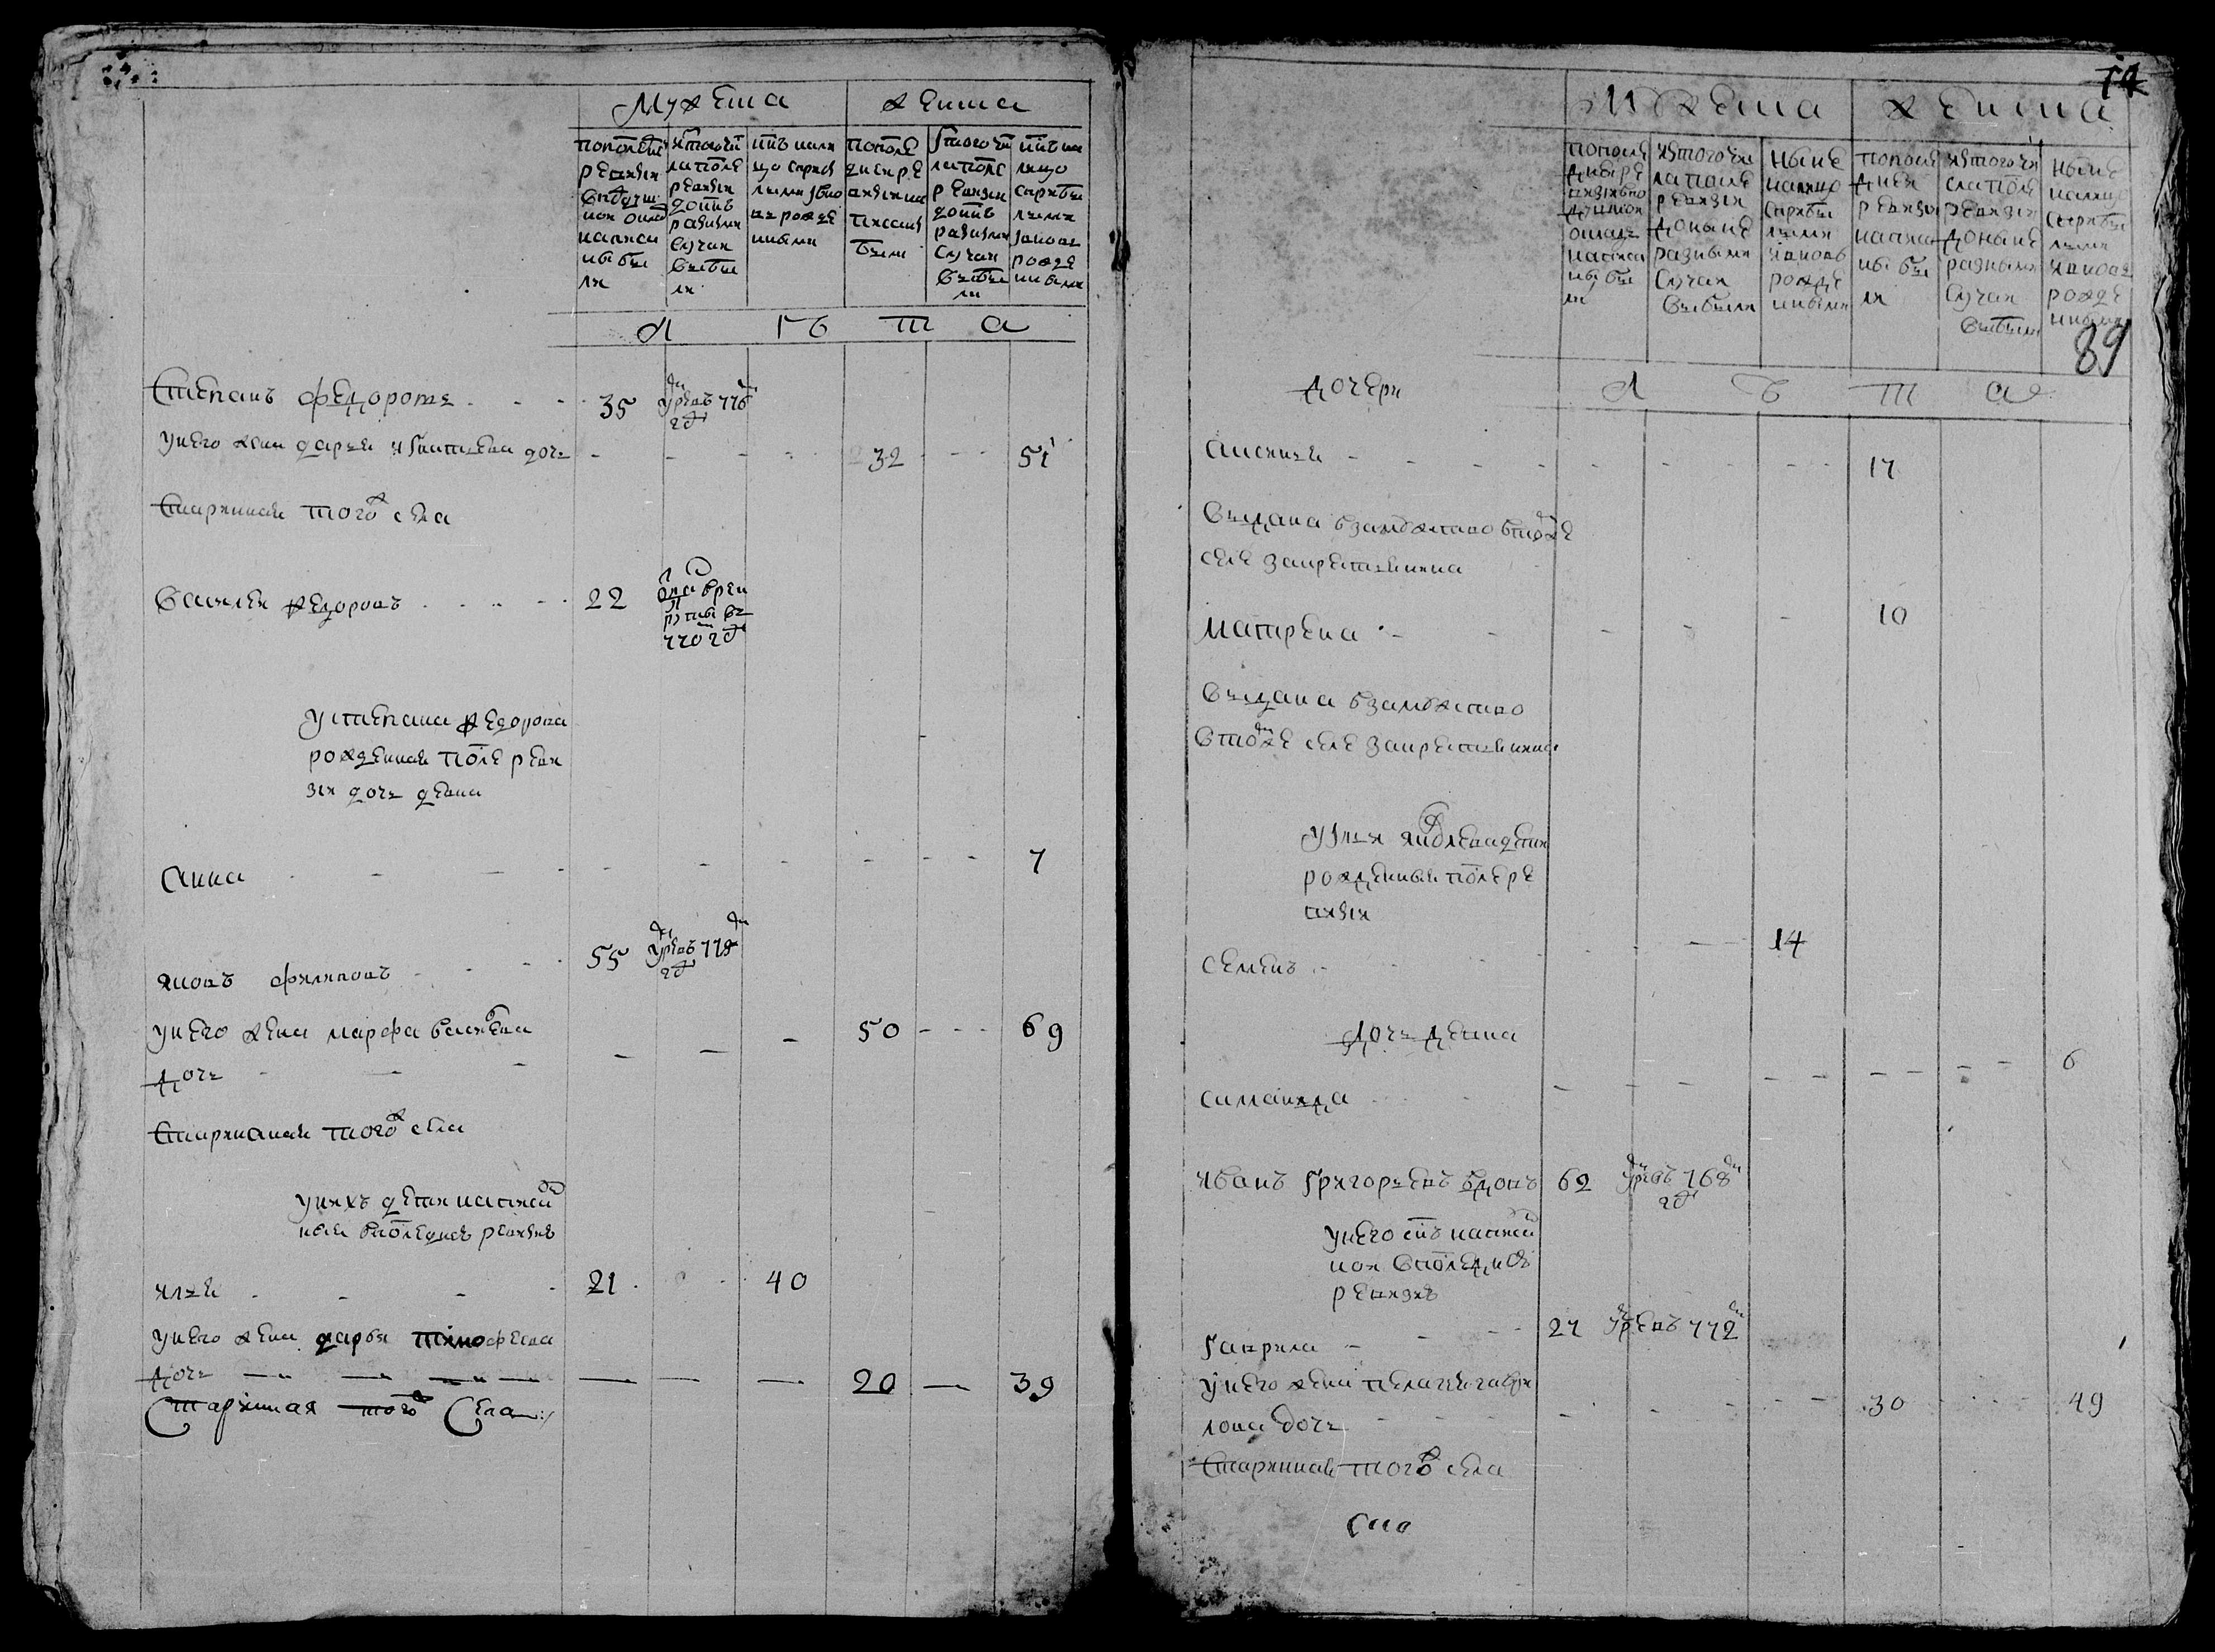 Мужеска
женска
по последней ревизии в подушной оклад написаны были
из того числа после ревизии до ныне разными случаи выбыли
ныне на лицо с прибылыми и вновь рожденными
по последней ревизии написаны были
из того числа после ревизии до ныне разными случаи выбыли
ныне на лицо с прибылыми и вновь рожденными
л ѣ т а
Степанъ федоровъ 35 умревъ 776 год
у него жена дарья дочь 32 51
старинная того ж села
василей федоровъ 22 в рекруты въ 770 год
у степана федорова
рожденная после реви
зии дочь девка
анна 7
яковъ филиповъ 55 умревъ 778 год
у него жена марфа васильева 50 69
дочь
старинная того ж села
у нихъ дети написан
ныя в последней ревизиі
илья 21 40
у него жена дарья тимофеева
дочь 20 39
Старинная того ж Села
14
89
Мужеска
женска
по последней ревизии в подушной оклад написаны были
из того числа после ревизии до ныне разными случаи выбыли
ныне на лицо с прибылыми и вновь рожденными
по последней ревизии написаны были
из того числа после ревизии до ныне разными случаи выбыли
ныне на лицо с прибылыми и вновь рожденными
дочери
л ѣ т а
аксинья 17
выдана в замужство в том же
селе за крестьянина
матрена 10
выдана в замужство
в том же селе за крестьянина
у ильи яковлева дети
рожденныя после ре
визии
семенъ 14
дочь девка
саманида 6
иванъ григорьевъ вдовъ 62 умревъ 768 год
у него сынъ написан
ной в последней
ревизиі
гаврила 27 умревъ 772
у него жена пелагея гаври
лова дочь 30 49
старинная того ж села